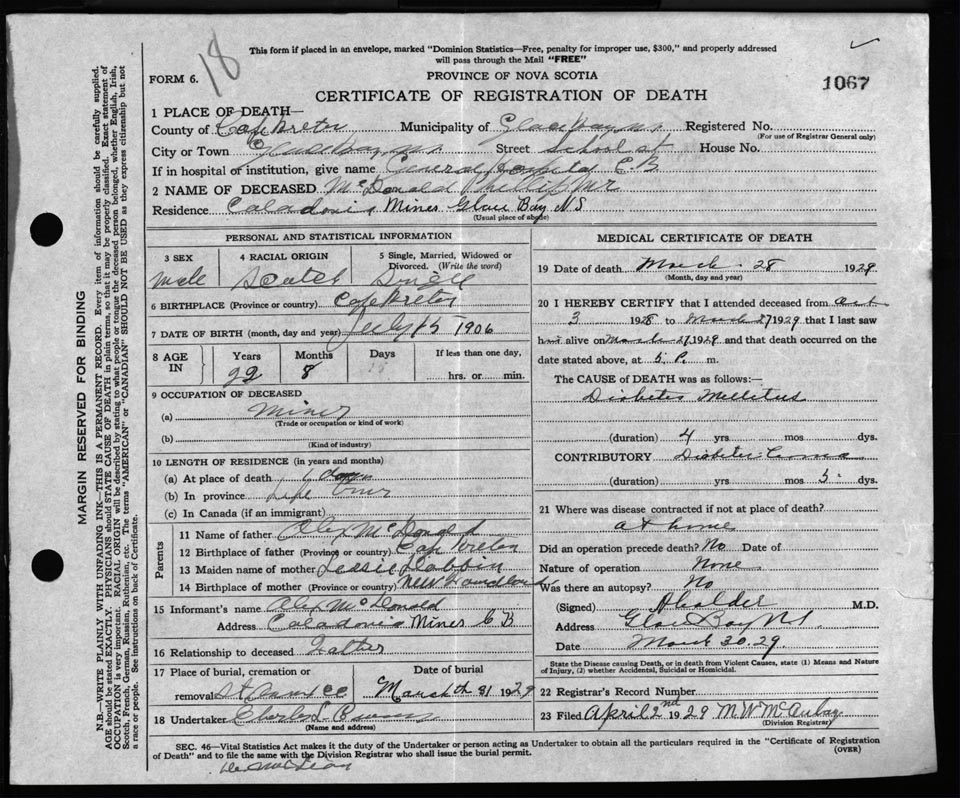 18
This form if placed in an envelope, marked "Dominion Statistics—Free, penalty for improper use, $300," and properly addressed
will pass through the Mail "FREE"
FORM 6.
PROVINCE OF NOVA SCOTIA
1067
CERTIFICATE OF REGISTRATION OF DEATH
1 PLACE OF DEATH—
County of Cape Breton Municipality of Glace Bay N.S. Registered No.
(For use of Registrar General only)
City or Town Glace Bay N.S. Street School St House No.
If in hospital of institution, give name General Hospital C.B
2 NAME OF DECEASED McDonald Phillip Mr
Residence Caladonia Mines Glace Bay N S
(Usual place of abode)
PERSONAL AND STATISTICAL INFORMATION
3 SEX 4 RACIAL ORIGIN 5 Single, Married, Widowed or
Divorced. (Write the word)
male Scotch Single
6 BIRTHPLACE (Province or country) Cape Breton
7 DATE OF BIRTH (month, day and year) July 15 1906
8 AGE IN Years Months Days If less than one day
22 8 hrs. or min.
9 OCCUPATION OF DECEASED
(a) Miner
(Trade or occupation or kind of work)
(b)
(Kind of industry)
10 LENGTH OF RESIDENCE (in years and months)
(a) At place of death 6 days
(b) In province Life time
(c) In Canada (if an immigrant)
Parents
11 Name of father Alex McDonald
12 Birthplace of father (Province or country) Cape Breton
13 Maiden name of mother
14 Birthplace of mother (Province or country) New Foundland
15 Informant's name Alex McDonald
Address Caladonia Mines C B
16 Relationship to deceased Father
17 Place of burial, cremation or Date of burial
removal March 31 1929
18 Undertaker
(Name and address)
MEDICAL CERTIFICATE OF DEATH
19 Date of death March 28 1929
(Month, day and year)
20 I HEREBY CERTIFY that I attended deceased from Oct
3 1928 to March 27 1929 that I last saw
him alive on March 27 1929 and that death occurred on the
date stated above, at 5 P. m.
The CAUSE OF DEATH was as follows:—
Diabetes Mellitus
(duration) 4 yrs. mos. dys.
CONTRIBUTORY Diabetic Coma
(duration) yrs. mos. 5 dys.
21 Where was disease contracted if not at place of death?
at home
Did an operation precede death? No Date of
Nature of operation None
Was there an autopsy? No
(Signed) M.D.
Address Glace Bay NS
Date March 30.29
State the Disease causing Death, or in death from Violent Causes, state (1) Means and Nature
of Injury, (2) whether Accidental, Suicidal or Homicidal.
22 Registrar's Record Number
23 Filed April 2nd 1929 M W McAulay
(Division Registrar)
SEC. 46—Vital Statistics Act makes it the duty of the Undertaker or person acting as Undertaker to obtain all the particulars required in the "Certificate of Registration
of Death" and to file the same with the Division Registrar who shall issue the burial permit. (OVER)
MARGIN RESERVED FOR BINDING
N.B.—WRITE PLAINLY WITH UNFADING INK—THIS IS A PERMANENT RECORD. Every item of information should be carefully supplied.
AGE should be stated EXACTLY. PHYSICIANS should STATE CAUSE OF DEATH in plain terms, so that it may be properly classified. Exact statement of
OCCUPATION is very important. RACIAL ORIGIN will be described by stating to what people or tongue the deceased person belonged, whether English, Irish,
Scotch, French, German, Russian, Ruthenian, etc. The terms "AMERICAN" or "CANADIAN" SHOULD NOT BE USED as they express citizenship but not
a race or people. See instructions on back of Certificate.